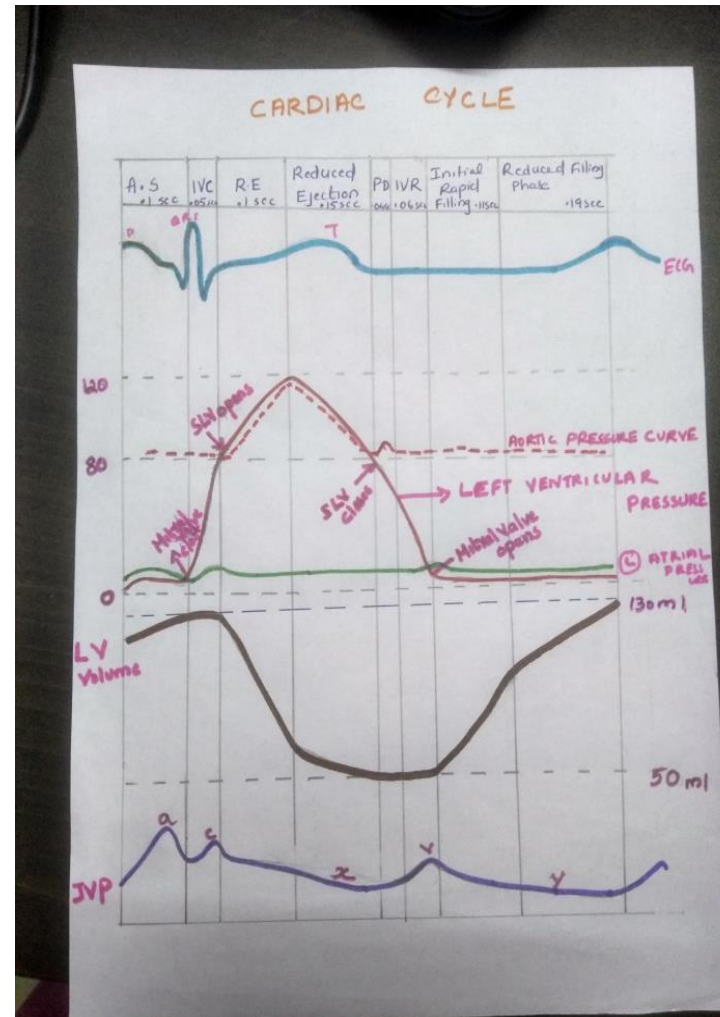 CARDIAC CYCLE
A.S
.1 sec
IVC
.05sec
R.E
.1 sec
Reduced
Ejection
.15sec
PD
IVR
.06sec
Initial
Rapid
Filling .11sec
Reduced Filling
Phase
.19sec
P
QRS
T
ECG
120
SLV opens
AORTIC PRESSURE CURVE
80
SLV
close
LEFT VENTRICULAR
PRESSURE
Mitral valve
Mitral valve
opens
L ATRIAL
PRESS
URE
0
130ml
LV
Volume
50 ml
a
c
x
v
y
JVP